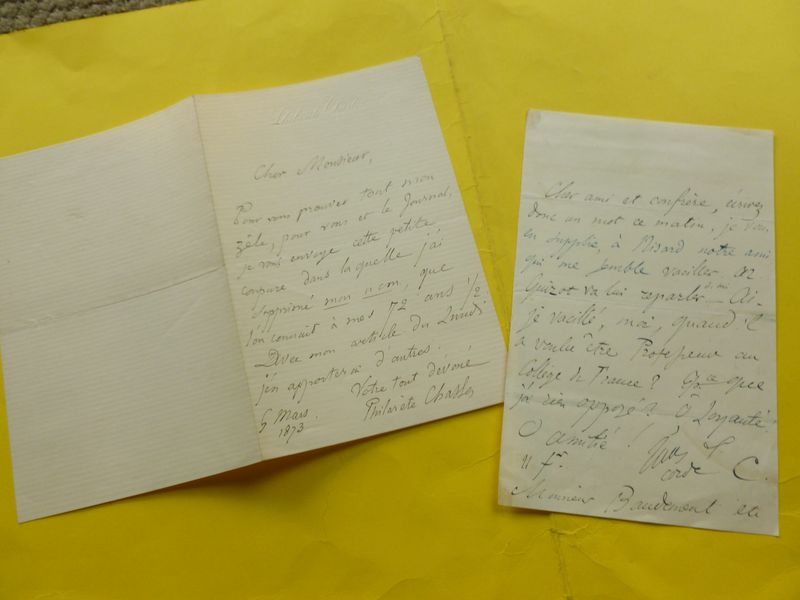 Cher Monsieur,
Pour vous prouver tout mon
zèle, pour vous et le Journal,
je vous envoye cette petite
coupure dans laquelle j'ai
supprimé mon nom, que
l'on connait à mes 72 ans 1/2
Avec mon article du Lundi
j'en apporterai d'autres.
Votre tout dévoué
5 Mars
1873
Philarète Chasles
Cher ami et confrère, écrivez
donc un mot ce matin, je vous
en supplie, à Nisard notre ami
qui me semble vaciller.
Guizot va lui reparler
je vacillé, moi, quand il
a voulu être Professeur au
Collège de France? que
j'ai rien opposé? O Loyauté!
O amitié!
corde
C.
11 f.
Monsieur Baudement etc